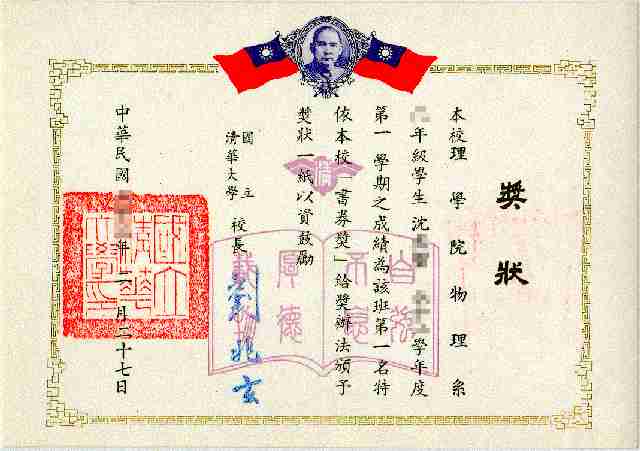 獎狀
本校理學院物理系
年級學生沈 學年度
第一學期之成績為該班第一名特
依本校「書券獎」給獎辦法頒予
獎狀一紙以資鼓勵
國立
清華大學
校長 劉兆玄
中華民國 年 月二十七日
國立清華大學印
自強不息
厚德載物
清